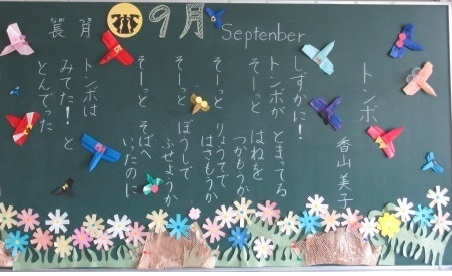 長月
9月
Septenber
トンボ
香山 美子
しずかに!
トンボが とまってる
そーっと はねを
つかもうか
そーっと りょうてで
はさもうか
そーっと ぼうしで
ふせようか
そーっと そばへ
いったのに
トンボは
みてた!と
とんでった